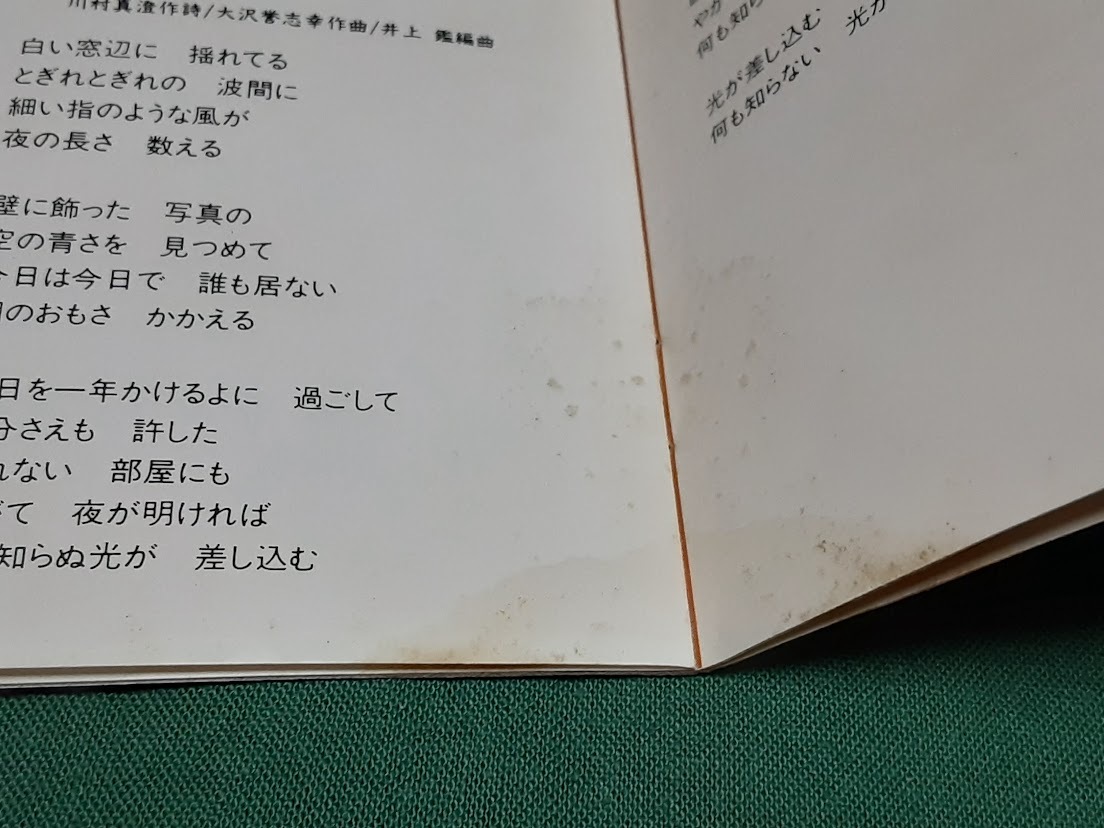 川村真澄作詩/大沢誉志幸作曲/井上 鑑編曲
白い窓辺に 揺れてる
とぎれとぎれの 波間に
細い指のような風が
夜の長さ 数える
壁に飾った 写真の
空の青さを 見つめて
今日は今日で 誰も居ない
のおもさ かかえる
日を一年かけるよに 過ごして
分さえも 許した
れない 部屋にも
て 夜が明ければ
知らぬ光が 差し込む
やが
何も知ら
光が差し込む 光が
何も知らない